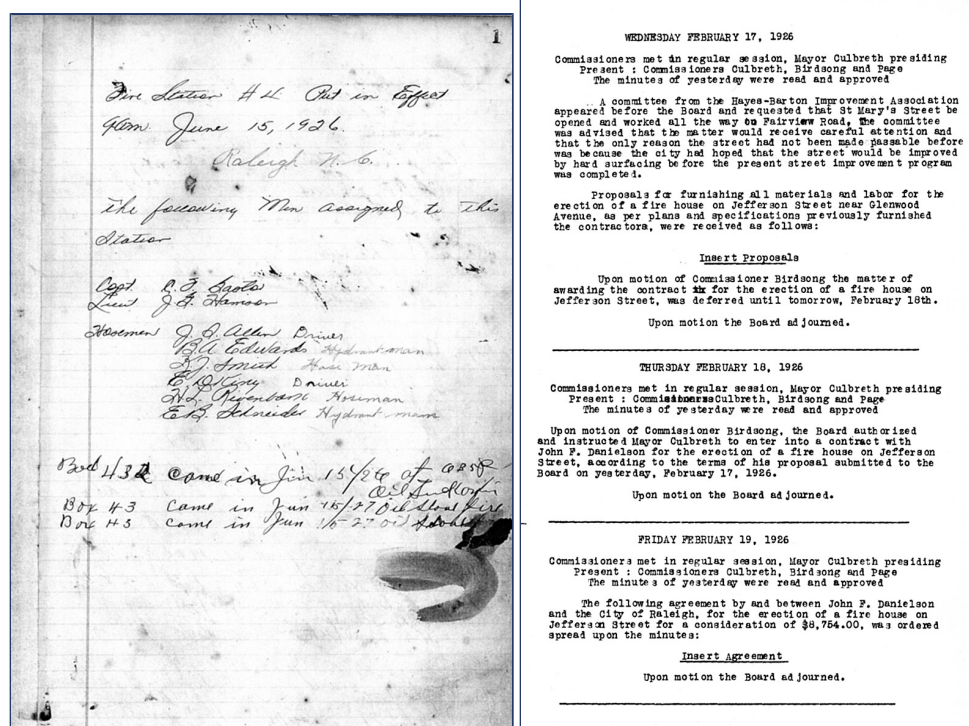 1
Fire Station #4 Put in Effect
June 15, 1926.
Raleigh N. C.
the following Men assigned to this
Station
Capt.
Lieut J. F.
Hosemen J. A. Allen Driver
B. A. Edwards Hydrant man
Smith Hose man
E. D. King Driver
H. L. Rivenbark Hoseman
E. B. Schneider Hydrant man
came in Jun 15/26 at
Box 43 came in Jun 15/27 Oil Stove fire
Box 43 came in Jun 15-27 oil
WEDNESDAY FEBRUARY 17, 1926
Commissioners met in regular session, Mayor Culbreth presiding
Present : Commissioners Culbreth, Birdsong and Page
The minutes of yesterday were read and approved
A committee from the Hayes-Barton Improvement Association
appeared before the Board and requested that St Mary's Street be
opened and worked all the way to Fairview Road, The committee
was advised that the matter would receive careful attention and
that the only reason the street had not been made passable before
was because the city had hoped that the street would be improved
by hard surfacing before the present street improvement program
was completed.
Proposals for furnishing all materials and labor for the
erection of a fire house on Jefferson Street near Glenwood
Avenue, as per plans and specifications previously furnished
the contractors, were received as follows:
Insert Proposals
Upon motion of Commissioner Birdsong the matter of
awarding the contract for the erection of a fire house on
Jefferson Street, was deferred until tomorrow, February 18th.
Upon motion the Board adjourned.
THURSDAY FEBRUARY 18, 1926
Commissioners met in regular session, Mayor Culbreth presiding
Present : Commissioners Culbreth, Birdsong and Page
The minutes of yesterday were read and approved
Upon motion of Commissioner Birdsong, the Board authorized
and instructed Mayor Culbreth to enter into a contract with
John F. Danielson for the erection of a fire house on Jefferson
Street, according to the terms of his proposal submitted to the
Board on yesterday, February 17, 1926.
Upon motion the Board adjourned.
FRIDAY FEBRUARY 19, 1926
Commissioners met in regular session, Mayor Culbreth presiding
Present : Commissioners Culbreth, Birdsong and Page
The minutes of yesterday were read and approved
The following agreement by and between John F. Danielson
and the City of Raleigh, for the erection of a fire house on
Jefferson Street for a consideration of $8,754.00, was ordered
spread upon the minutes:
Insert Agreement
Upon motion the Board adjourned.